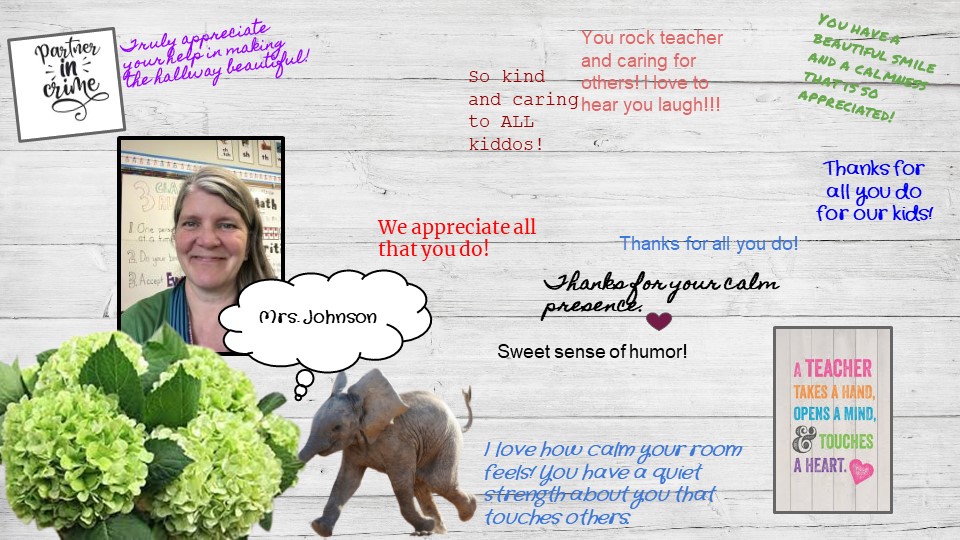 Partner
in
crime
Truly appreciate
your help in making
the hallway beautiful!
So kind
and caring
to ALL
kiddos!
You rock teacher
and caring for
others! I love to
hear you laugh!!!
You have a
beautiful smile
and a calmness
that is so
appreciated!
Thanks for
all you do
for our kids!
We appreciate all
that you do!
Thanks for all you do!
Thanks for your calm
presence.
Sweet sense of humor!
Mrs. Johnson
A TEACHER
TAKES A HAND,
OPENS A MIND,
& TOUCHES
A HEART.
I love how calm your room
feels! You have a quiet
strength about you that
touches others.